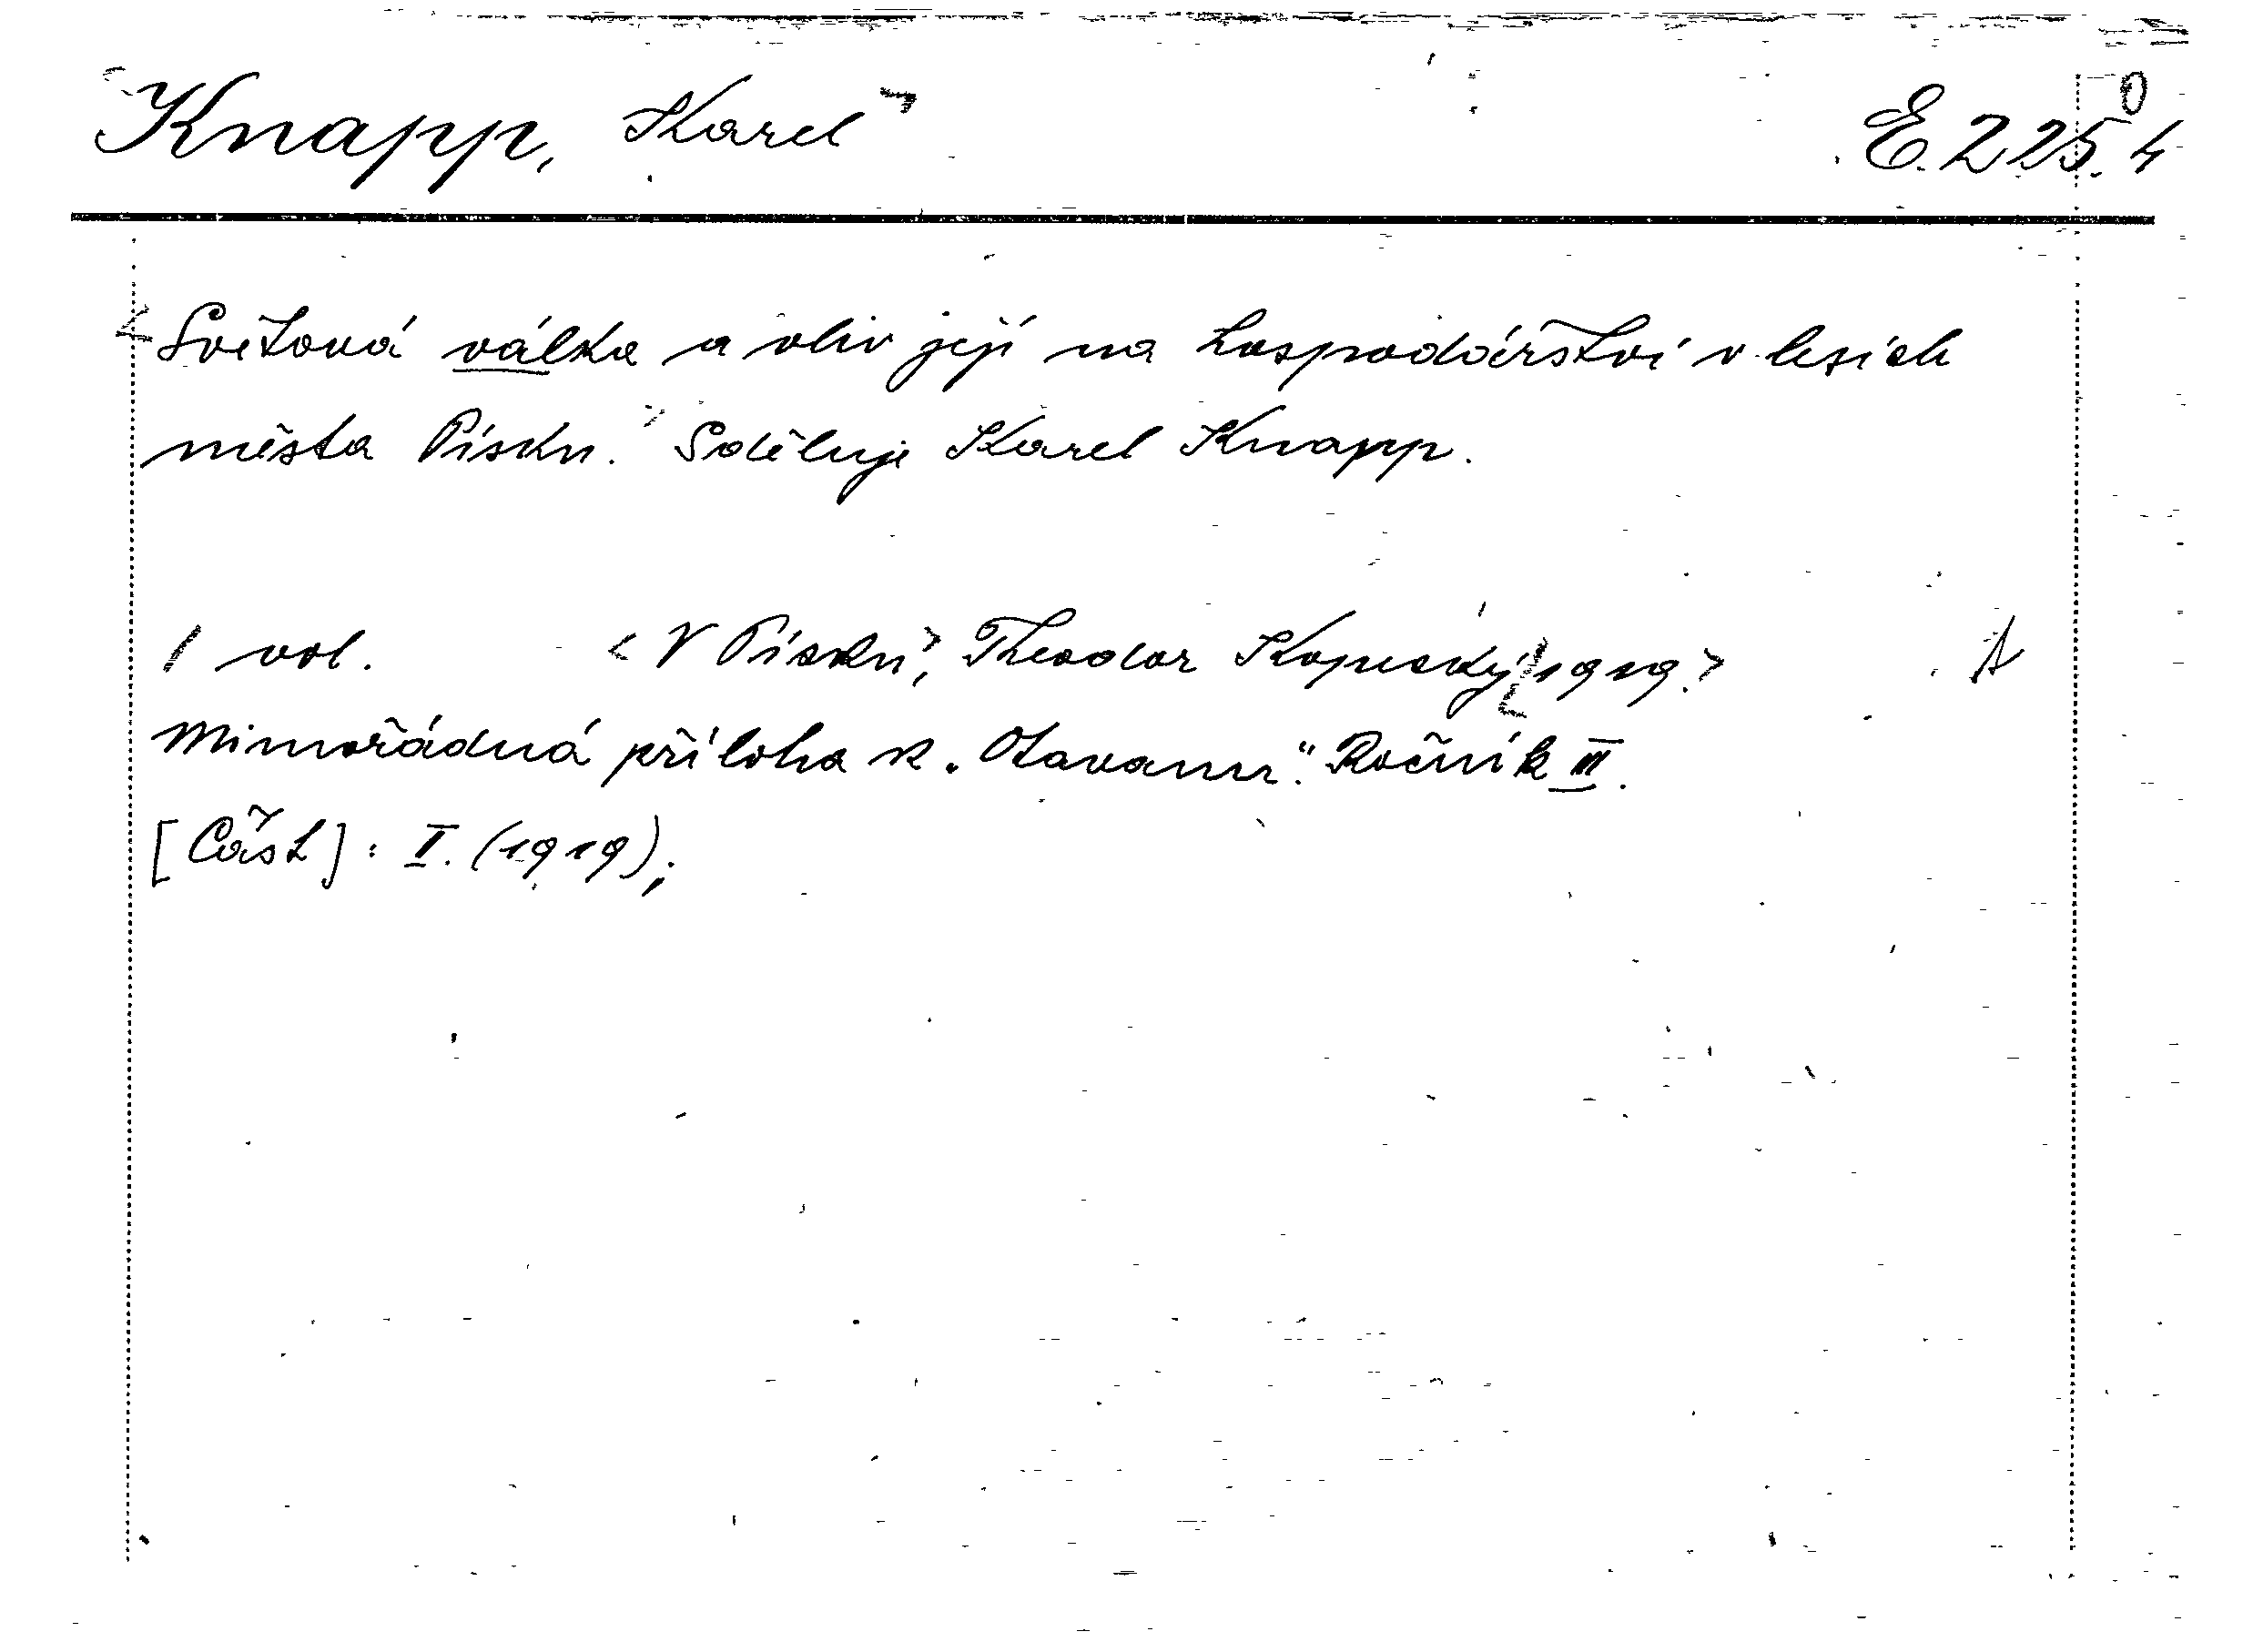 Knapp, Karel E.225.4
0
Světová válka a vliv její na hospodářství v lesích
města Písku. Sděluje Karel Knapp.
1 vol. <V Písku>, Theodor Kopecký 1919.> A
Mimořádná příloha k „Otavanu“. Ročník III.
[Část]: I. (1919);